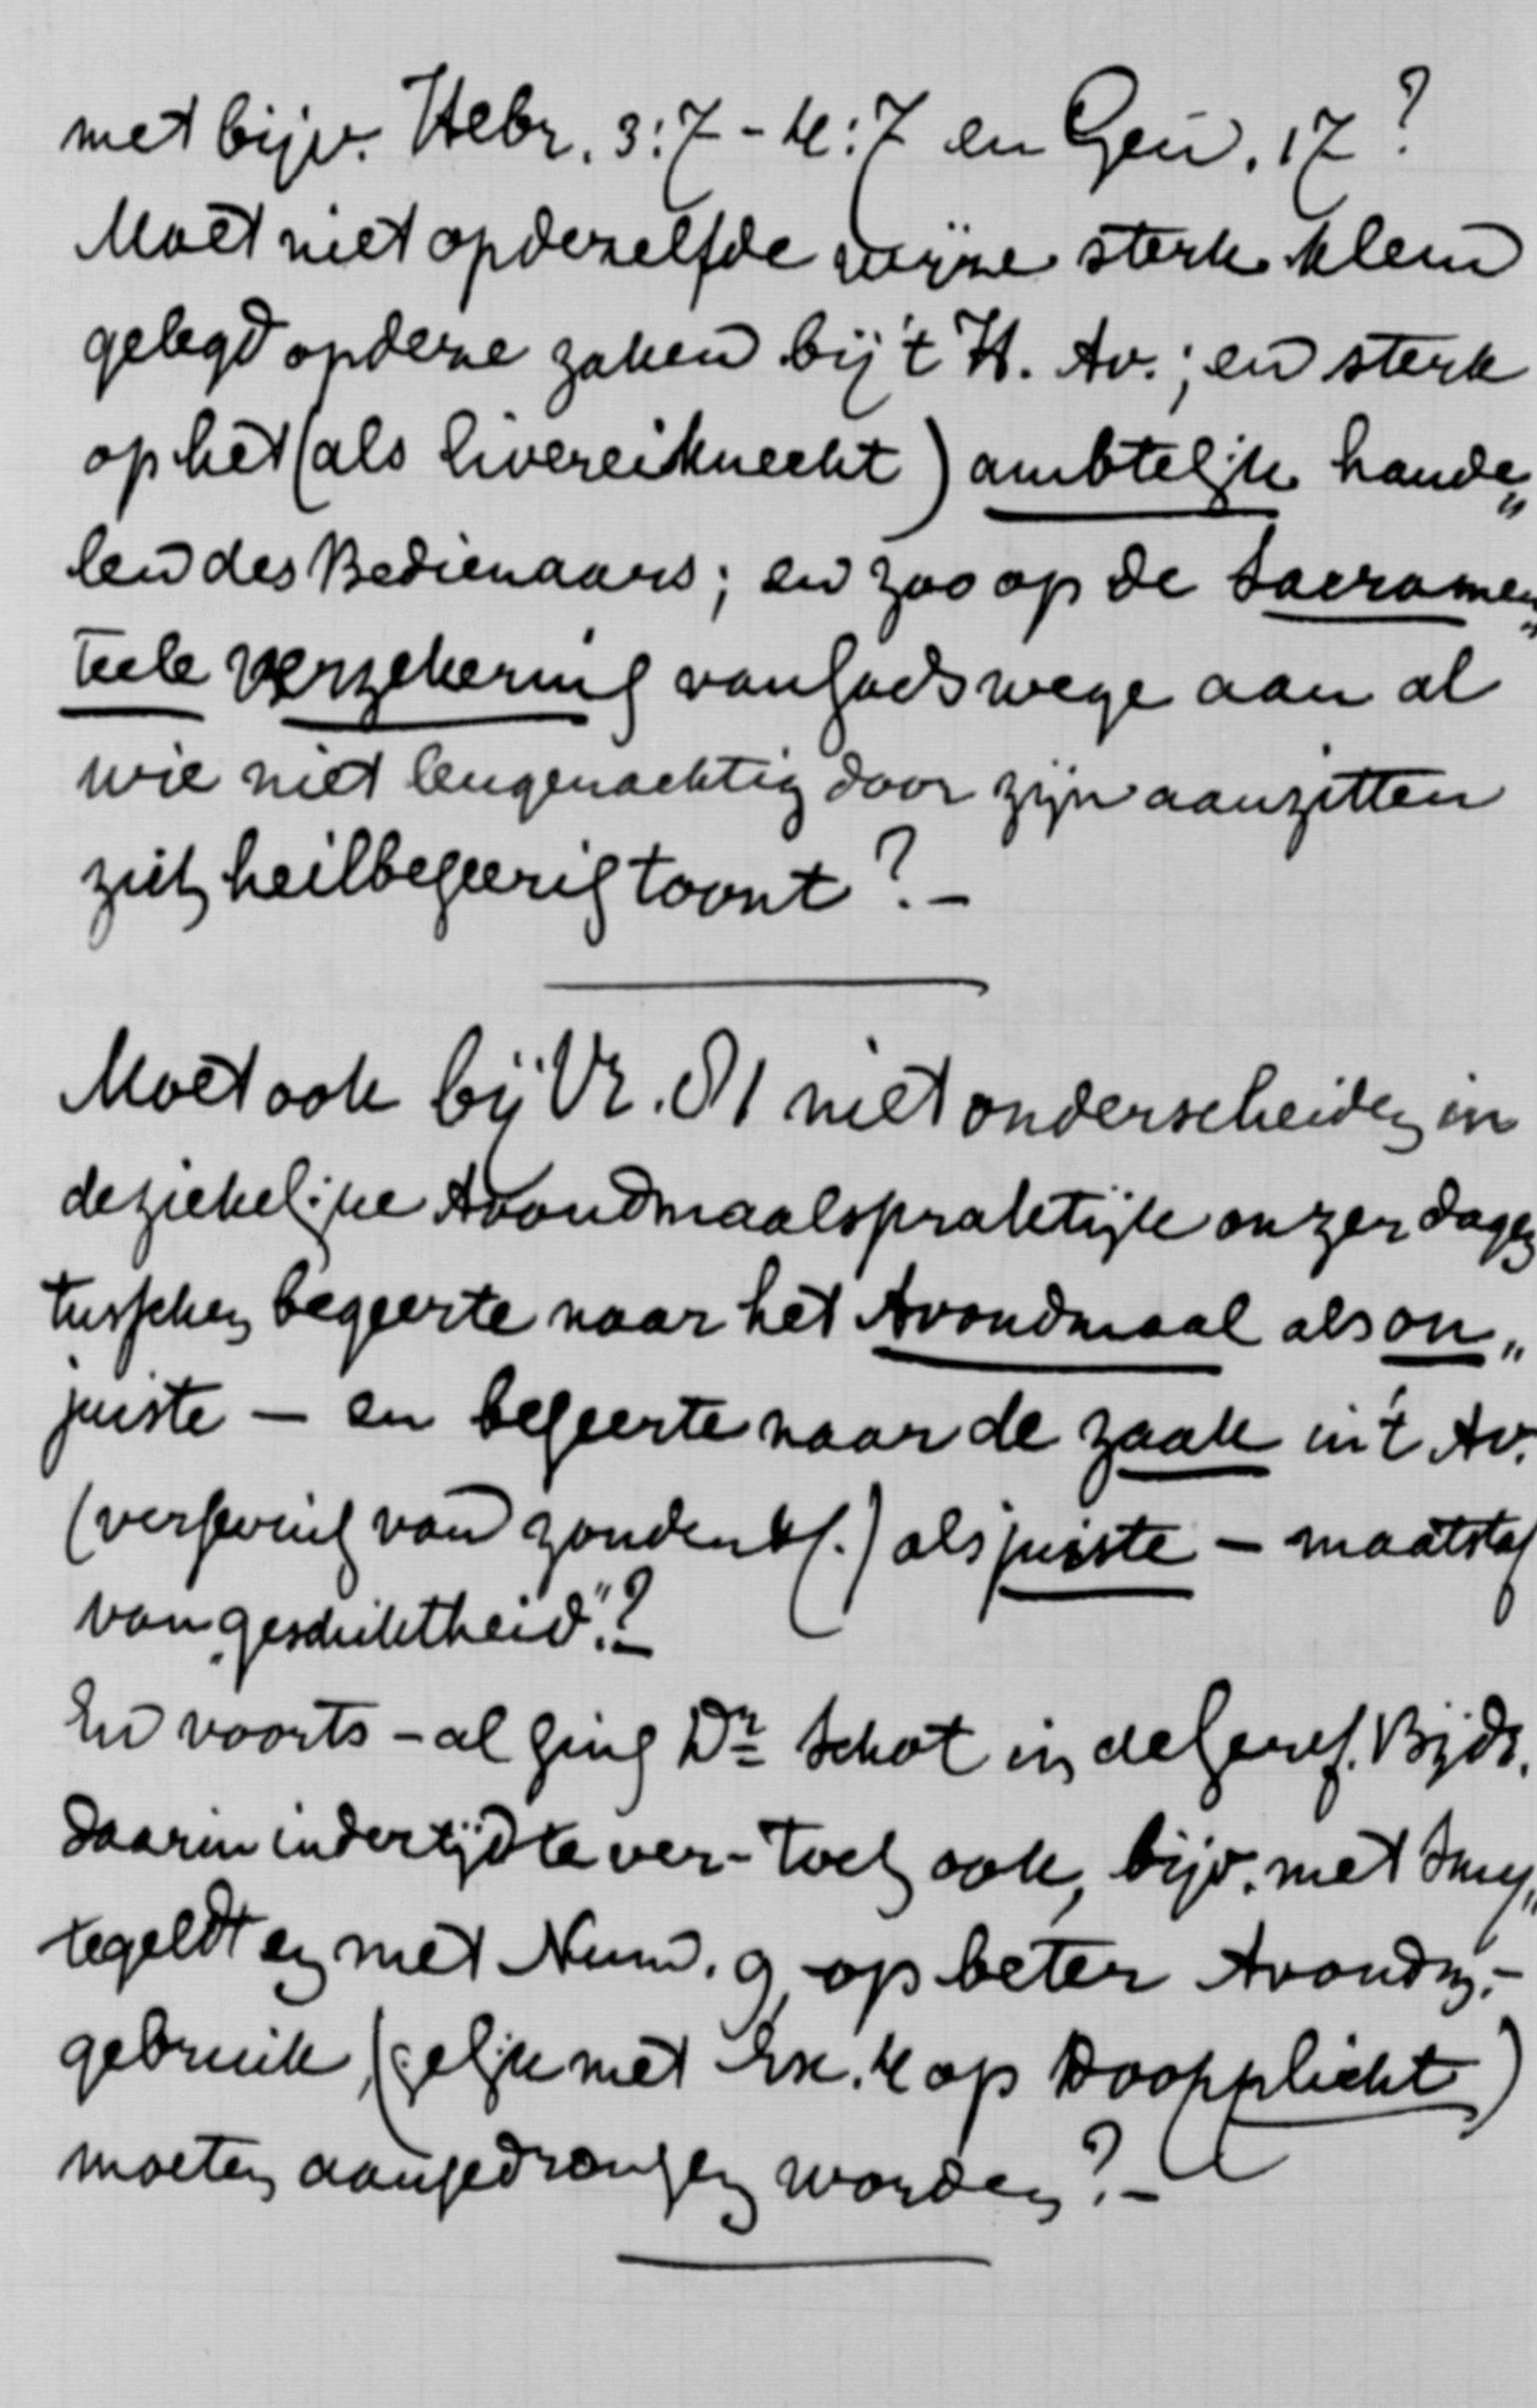 met bijv. Hebr. 3:7 - 4:7 en Gen. 17?
Moet niet op dezelfde wijze sterk klem
gelegd op deze zaken bij 't H. Av.; en sterk
op het (als livereiknecht) ambtelijk hande„
len des Bedienaars; en zoo op de Sacramen„
teele verzekering van Gods wege aan al
wie niet leugenachtig door zijn aanzitten
zich heilbegeerig toont? -
Moet ook bij Vr. 81 niet onderscheiden in
de ziekelijke Avondmaalspraktijk onzer dagen
tusschen begeerte naar het Avondmaal als on„
juiste - en begeerte naar de zaak in 't Av.
(vergeving van zonden ) als juiste - maatstaf
van „geschiktheid"? -
En voorts - al ging Dr Schot in de Geref. Bijdr.
daarin indertijd te ver - toch ook, bijv. met Smij„
tegeldt en met Num. 9, op beter Avondm.-
gebruik, (gelijk met Ex. 4 op Doopplicht)
moeten aangedrongen worden? -